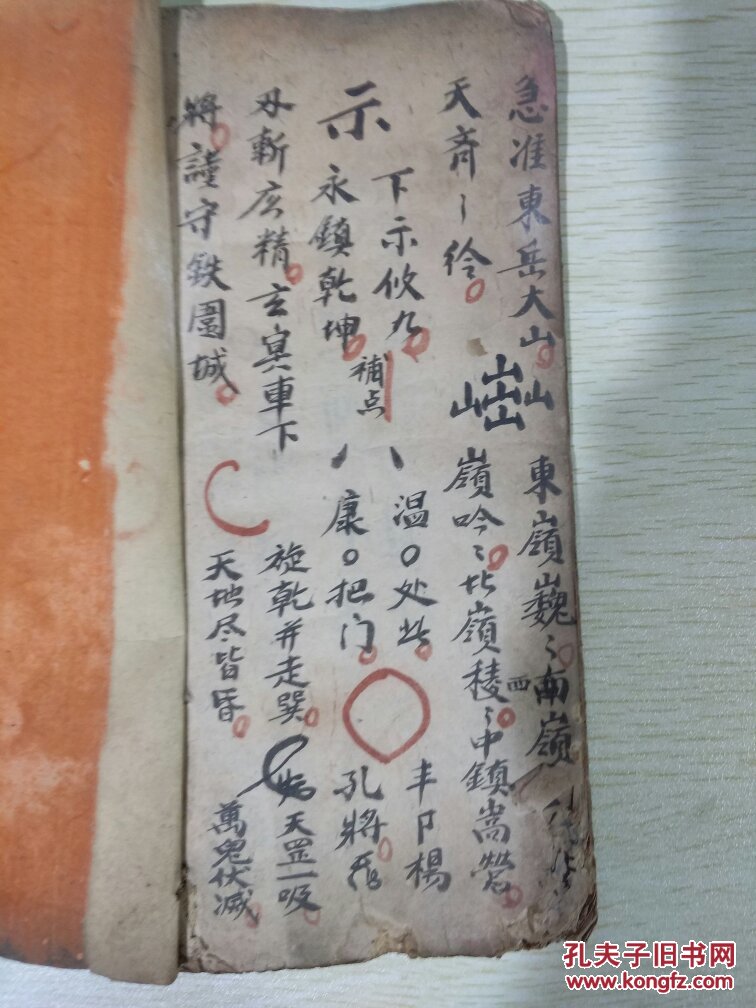 急准東岳大山
天齊〻
示
下示攸九
永鎮乾坤
補点
斬
精
玄冥車下
將謹守鉄圍城
山山山山山
東嶺巍〻南嶺
西
嶺吟〻北嶺稜〻中鎮嵩
八
温〇处
康〇把门
旋乾并走巽
天地尽皆昏
楊
孔將
天罡一吸
萬鬼伏滅
孔夫子旧书网
www.kongfz.com